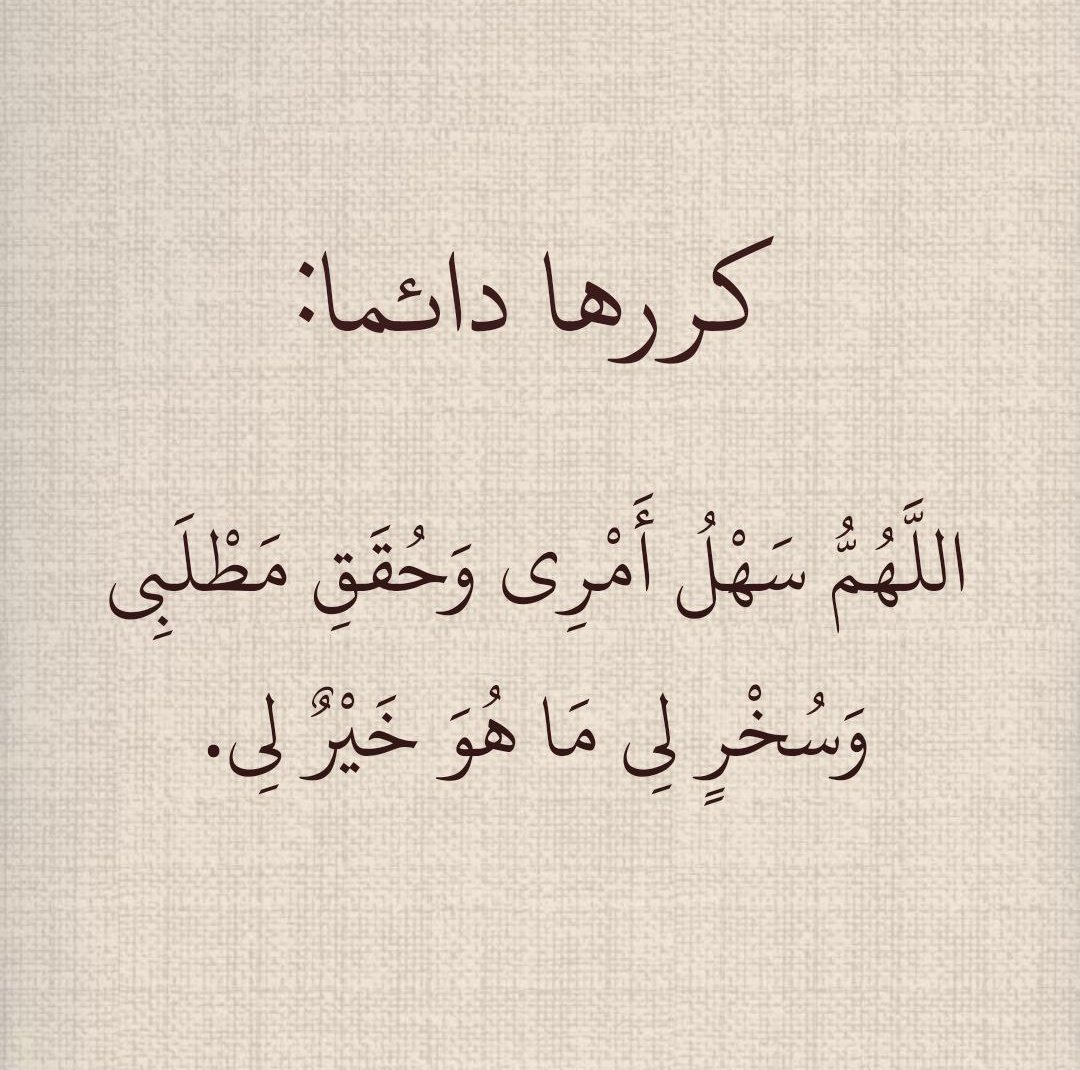 كررها دائما:
اللَّهُمُّ سَهْلُ أَمْرِى وَحُقَقِ مَطْلَبِى
وَسُخْرٍ لِى مَا هُوَ خَيْرٌ لِى.